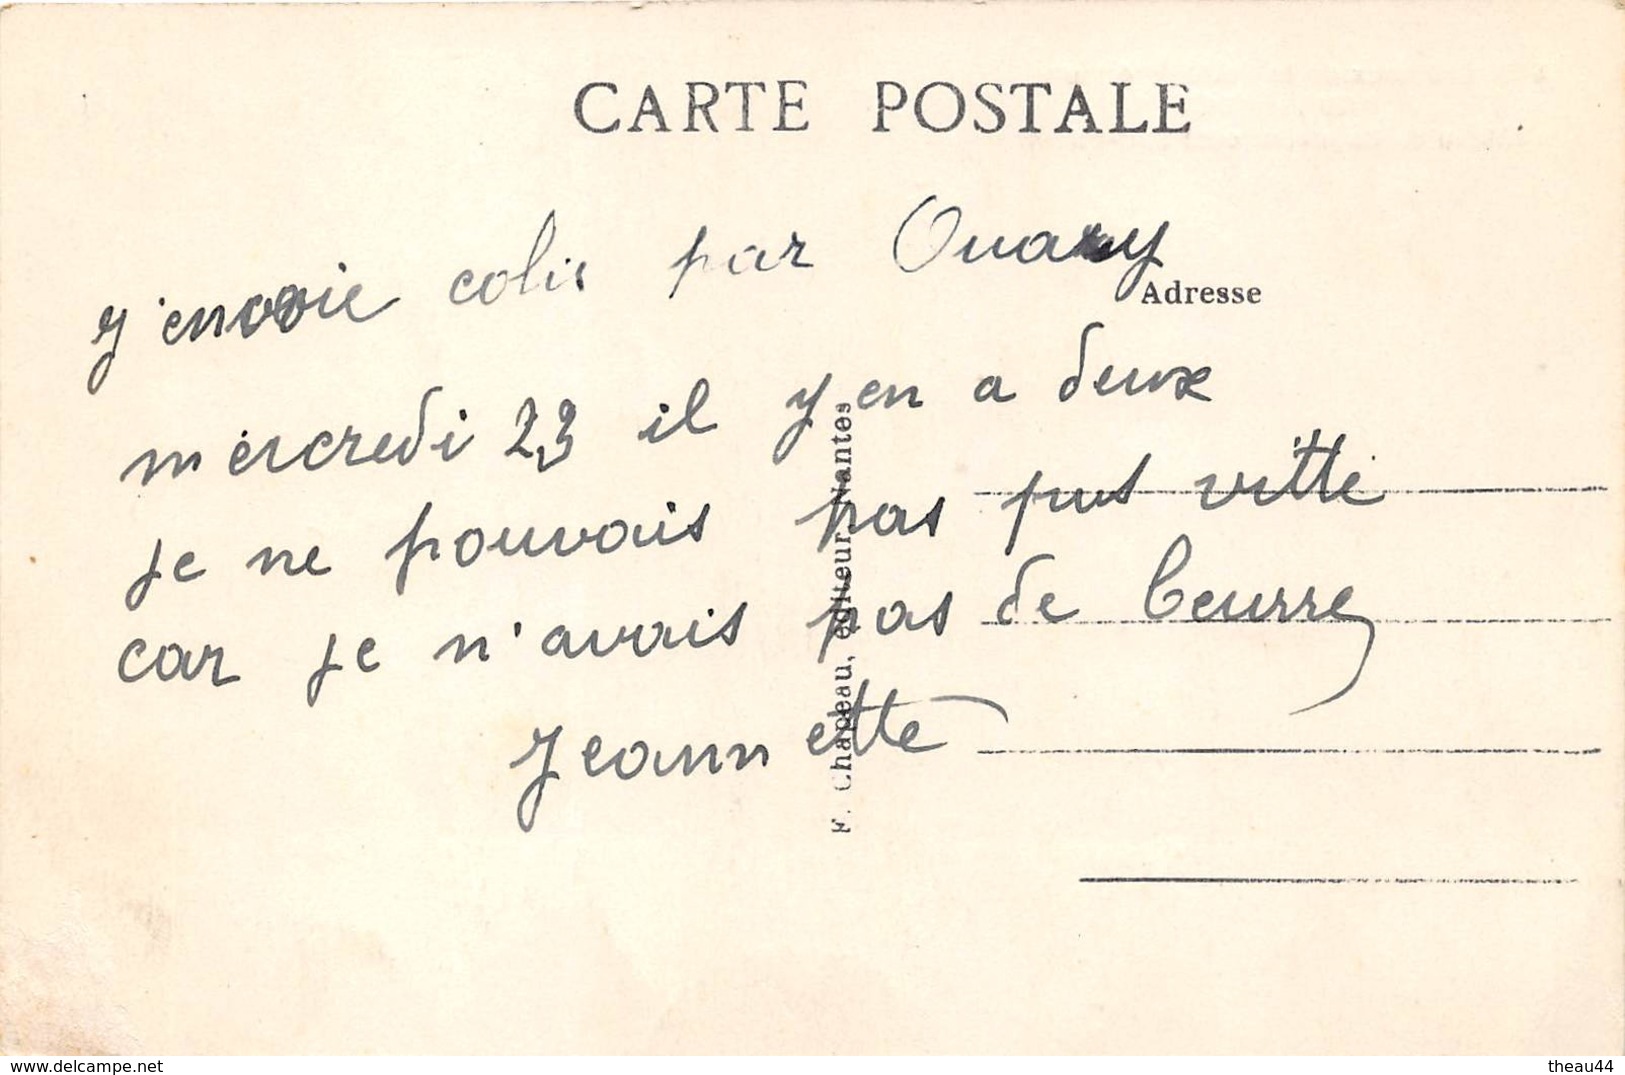 CARTE POSTALE
j'envoie colis par Ouary
Adresse
mercredi 23 il y en a deux
je ne pouvais pas pus vitte
car je n'avais pas de beurre
Jeannette
F. Chapeau, éditeur, Nantes
https://www.delcampe.net
theau44